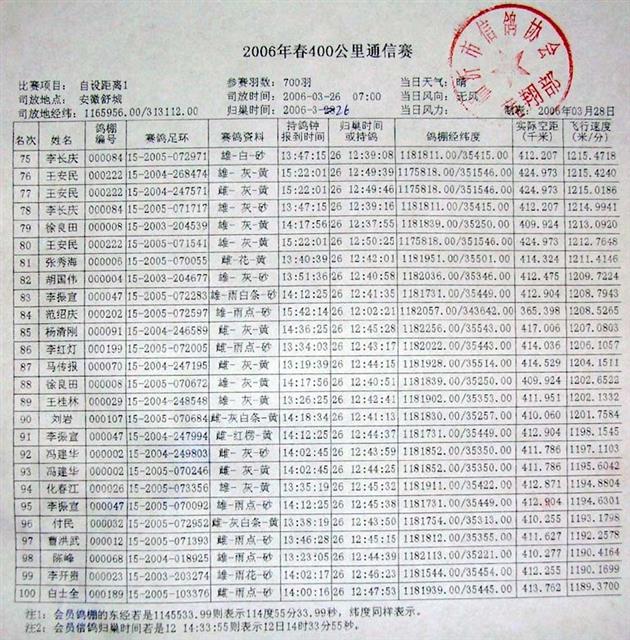 2006年春400公里通信赛
比赛项目: 自设距离1 参赛羽数: 700羽 当日天气: 晴
司放地点: 安徽舒城 司放时间: 2006-03-26 07:00 当日风向: 无风
司放地经纬: 1165956.00/313112.00 归巢时间: 2006-3- 2826 当日风力: 2006年03月28日
市信鸽协会
翔部
名次 姓名 鸽棚编号 赛鸽足环 赛鸽资料 持鸽钟报到时间 归巢时间或持鸽 鸽棚经纬度 实际空距(千米) 飞行速度(米/分)
75 李长庆 000084 15-2005-072971 雄-白-砂 13:47:15 26 12:39:08 1181811.00/35415.00 412.207 1215.4718
76 王安民 000222 15-2004-268474 雄- 灰-黄 15:22:01 26 12:49:39 1175818.00/351546.00 424.973 1215.4240
77 王安民 000222 15-2004-247571 雄- 灰-黄 15:22:01 26 12:49:46 1175818.00/351546.00 424.973 1215.0186
78 李长庆 000084 15-2005-071717 雄- 灰-砂 13:47:15 26 12:39:16 1181811.00/35415.00 412.207 1214.9941
79 徐良田 000008 15-2003-204539 雄- 灰-黄 14:17:56 26 12:37:55 1181839.00/35250.00 409.924 1213.0920
80 王安民 000222 15-2005-071541 雄- 灰-黄 15:22:01 26 12:50:25 1175818.00/351546.00 424.973 1212.7648
81 张秀海 000006 15-2005-070055 雌-花-黄 13:40:39 26 12:42:01 1181951.00/35501.00 414.324 1211.4146
82 胡国伟 000004 15-2003-204677 雄- 灰-砂 13:51:36 26 12:40:58 1182036.00/35346.00 412.475 1209.7224
83 李振宣 000047 15-2005-072283 雄-雨白条-砂 14:12:25 26 12:41:35 1181731.00/35449.00 412.904 1208.7943
84 范绍庆 000202 15-2005-072597 雄-雨点-砂 15:42:14 26 12:02:21 1182057.00/343642.00 365.398 1208.5265
85 杨清刚 000091 15-2004-246589 雌- 灰-黄 14:36:25 26 12:45:28 1182256.00/35543.00 417.006 1207.0803
86 李红灯 000199 15-2005-072005 雌-雨点-砂 13:34:03 26 12:43:17 1182022.00/35443.00 414.036 1206.1057
87 马传报 000070 15-2004-247195 雌- 灰-黄 13:19:39 26 12:44:15 1181928.00/35514.00 414.529 1204.1511
88 徐良田 000008 15-2005-070672 雄- 灰-黄 14:17:56 26 12:40:51 1181839.00/35250.00 409.924 1202.6522
89 王桂林 000029 15-2004-248548 雄- 灰-黄 13:26:25 26 12:42:41 1181902.00/35353.00 411.951 1202.1332
90 刘岩 000107 15-2005-070684 雌-灰白条-黄 14:18:34 26 12:41:13 1181830.00/35257.00 410.060 1201.7584
91 李振宣 000047 15-2004-247994 雌-红楞-黄 14:12:25 26 12:44:37 1181731.00/35449.00 412.904 1198.1545
92 冯建华 000002 15-2004-249803 雌- 灰-砂 14:02:45 26 12:43:59 1181852.00/35350.00 411.786 1197.1103
93 冯建华 000002 15-2005-070246 雌- 灰-黄 14:02:45 26 12:44:25 1181852.00/35350.00 411.786 1195.6042
94 化春江 000026 15-2005-073356 雄- 灰-黄 13:35:19 26 12:45:32 1181911.00/35422.00 412.871 1194.8804
95 李振宣 000047 15-2005-070092 雄-雨点-砂 14:12:25 26 12:45:38 1181731.00/35449.00 412.904 1194.6301
96 付民 000032 15-2005-072952 雌-灰白条-黄 13:38:19 26 12:43:50 1181754.00/35313.00 410.255 1193.1798
97 曹洪武 000012 15-2005-071393 雄-雨点-砂 13:46:28 26 12:45:15 1181812.00/35355.00 411.627 1192.2578
98 陈峰 000068 15-2004-018925 雄-雨点-砂 13:23:05 26 12:44:39 1182113.00/35221.00 410.277 1190.4164
99 李开贵 000023 15-2003-203274 雄-雨花-砂 14:02:17 26 12:46:23 1181544.00/35454.00 412.255 1190.1699
100 白士全 000189 15-2005-103376 雌-雨点-砂 14:00:16 26 12:47:53 1181939.00/35445.00 413.762 1189.3700
注1: 会员鸽棚的东经若是1145533.99则表示114度55分33.99秒,纬度同样表示。
注2: 会员信鸽归巢时间若是12 14:33:55则表示12日14时33分55秒。